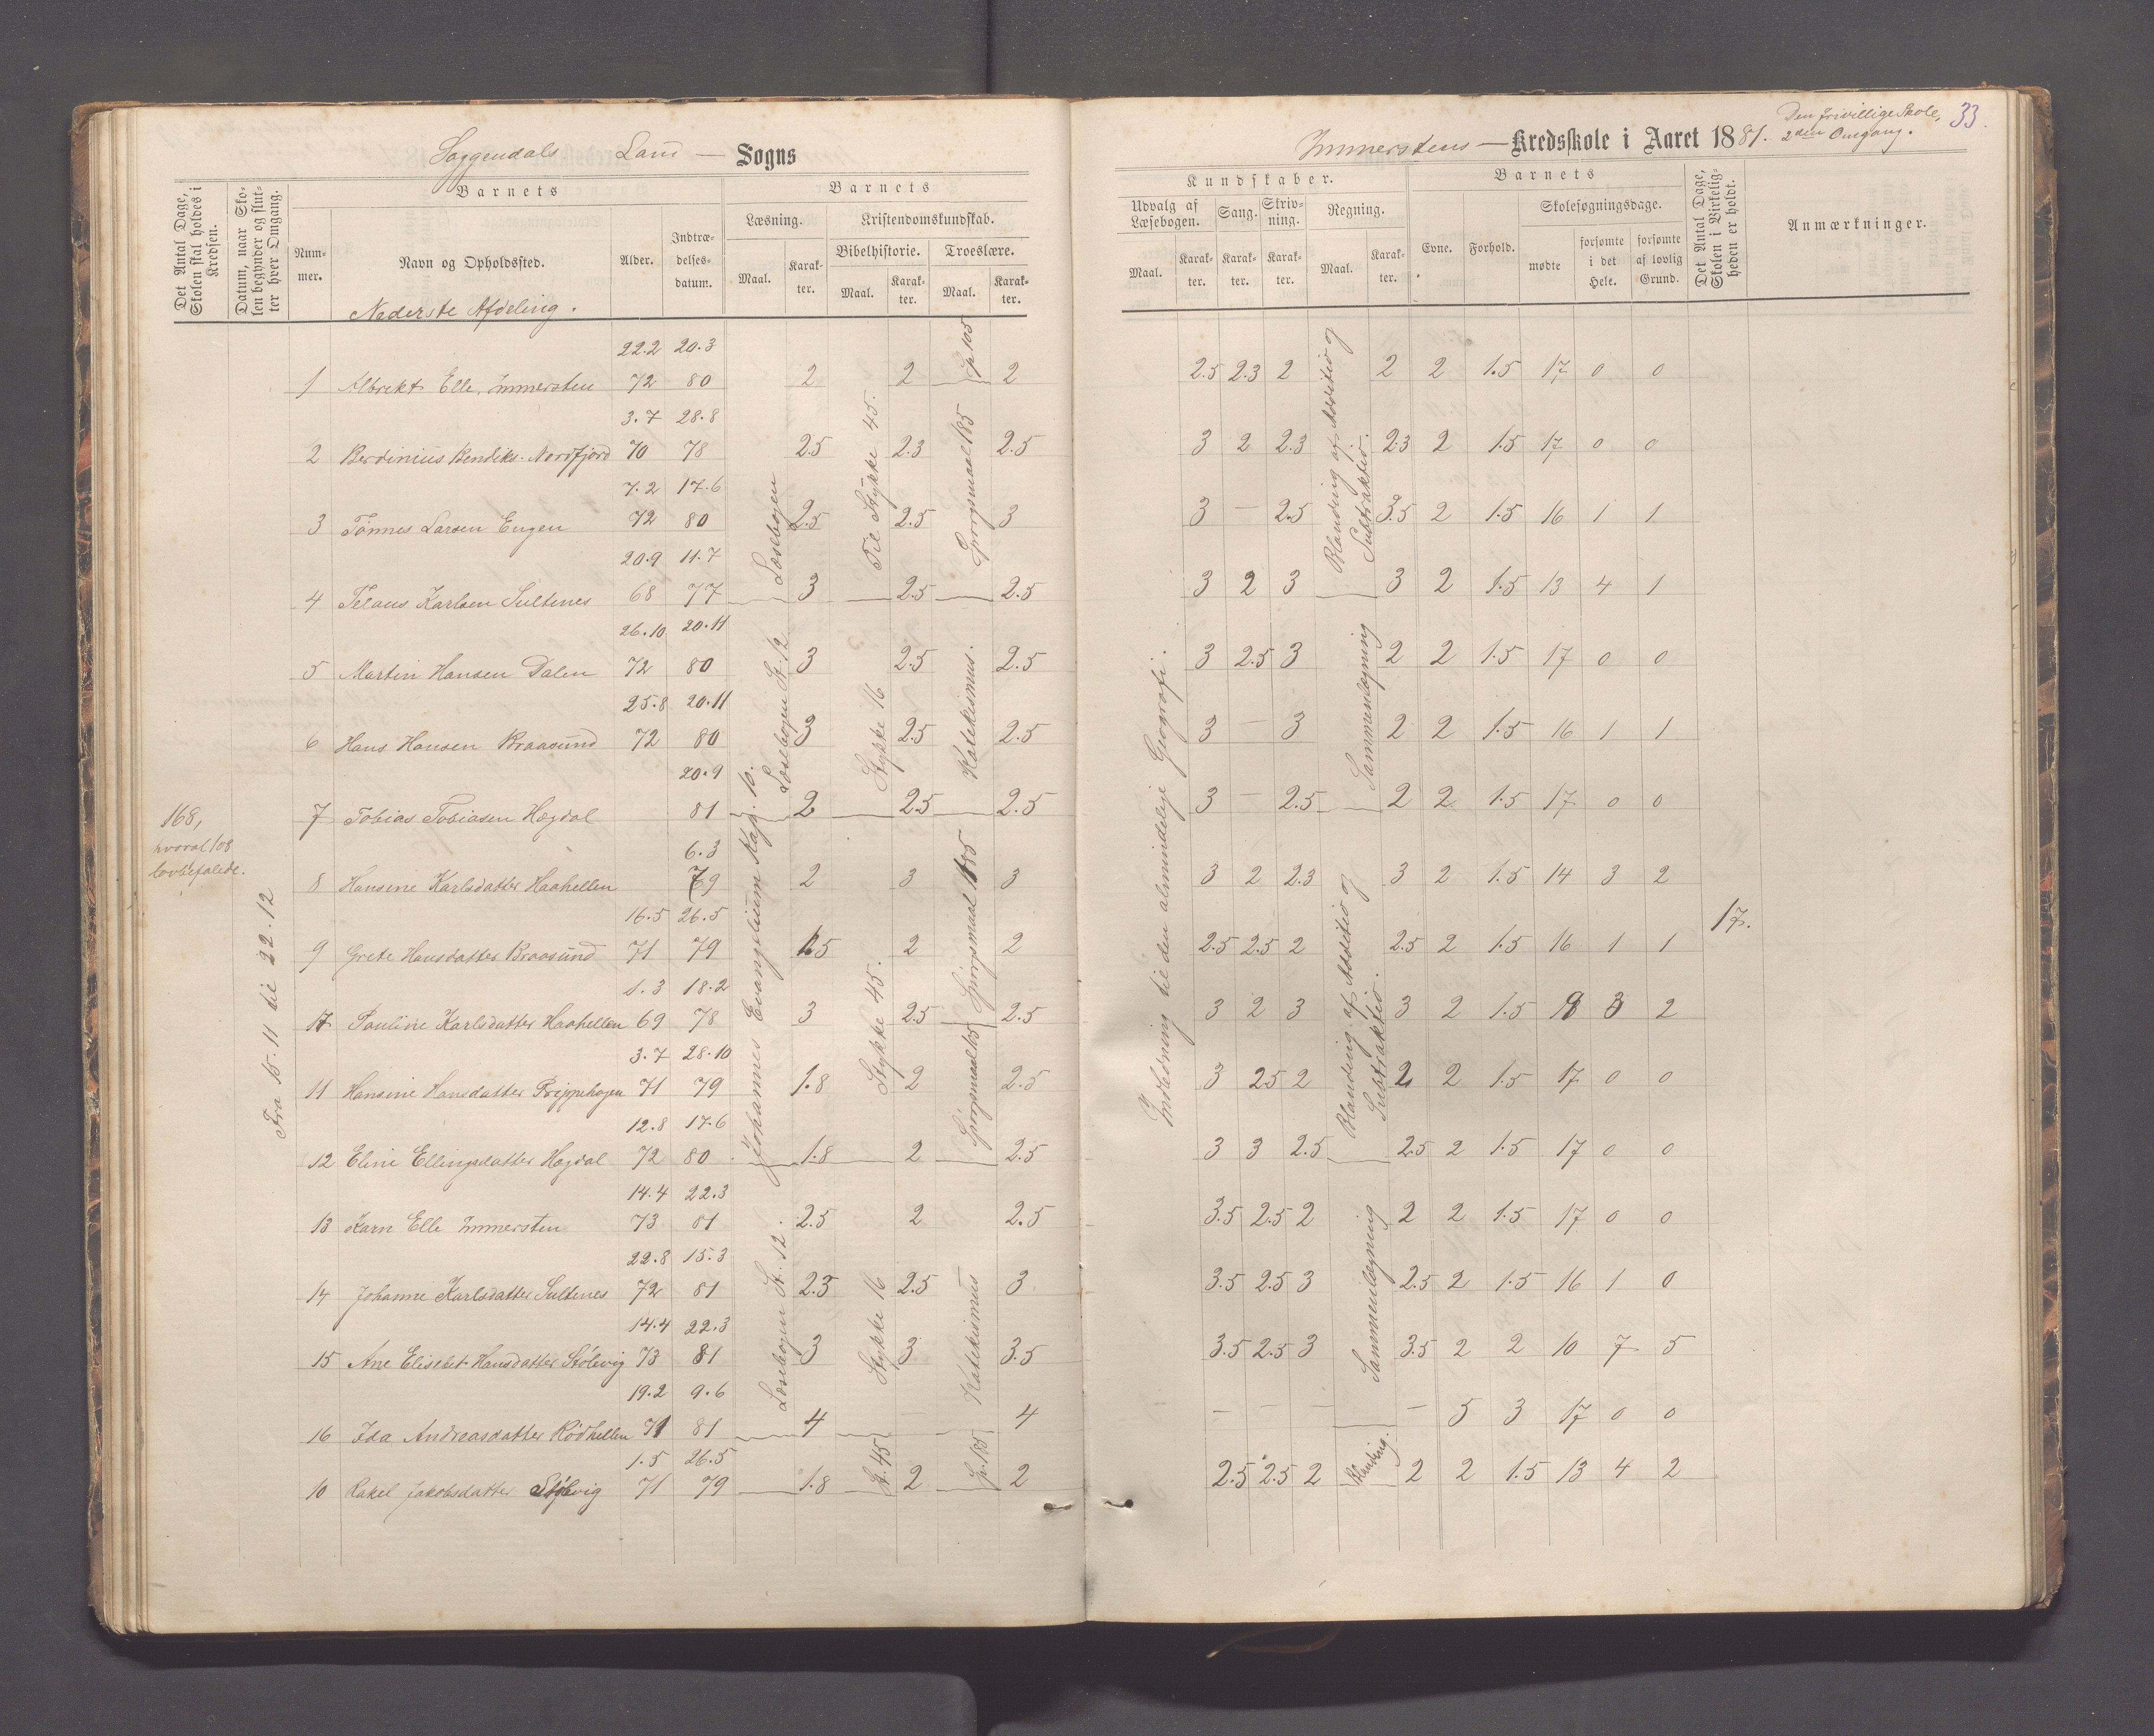 Soggendals Land — Sogns
Immerstens — Kredsskole i Aaret 1881. Den frivillige Skole, 2den Omgang. 33.
Det Antal Dage, Skolen skal holdes i Kredsen.
Datum, naar Skolen begynder og slutter hver Omgang.
Barnets
Nummer.
Navn og Opholdssted.
Alder.
Indtrædelsesdatum.
Barnets
Læsning.
Maal.
Karakter.
Kristendomskundskab.
Bibelhistorie.
Maal.
Karakter.
Troeslære.
Maal.
Karakter.
Kundskaber.
Udvalg af Læsebogen.
Maal.
Karakter.
Sang.
Karakter.
Skrivning.
Karakter.
Regning.
Maal.
Karakter.
Barnets
Evne.
Forhold.
Skolesøgningsdage.
mødte
forsømte i det Hele.
forsømte af lovlig Grund.
Det Antal Dage, Skolen i Virkeligheden er holdt.
Anmærkninger.
Nederste Afdeling.
168,
hvoraf 108
lovbefalede.
Fra 15.11 til 22.12
22.2 20.3
1 Albrekt Elle, Immersten 72 80 2 2 2 2.5 2.3 2 2 2 1.5 17 0 0
3.7 28.8
2 Berdinius Bendiks. Nordfjord 70 78 2.5 2.3 2.5 3 2 2.3 2.3 2 1.5 17 0 0
7.2 17.6
3 Tønnes Larsen Eugen 72 80 2.5 2.5 3 3 — 2.5 3.5 2 1.5 16 1 1
20.9 11.7
4 Telaus Karlsen Sultenes 68 77 3 2.5 2.5 3 2 3 3 2 1.5 13 4 1
26.10 20.11
5 Martin Hansen Dalen 72 80 3 2.5 2.5 3 2.5 3 2 2 1.5 17 0 0
25.8 20.11
6 Hans Hansen Braasund 72 80 3 2.5 2.5 3 — 3 2 2 1.5 16 1 1
20.9
7 Tobias Tobiasen Hegdal 81 2 2.5 2.5 3 — 2.5 2 2 1.5 17 0 0
6.3
8 Hansine Karlsdatter Haahellen 79 2 3 3 3 2 2.3 3 2 1.5 14 3 2
16.5 26.5
9 Grete Hansdatter Braasund 71 79 1.5 2 2 2.5 2.5 2 2.5 2 1.5 16 1 1
17.
1.3 18.2
17 Pauline Karlsdatter Haahellen 69 78 3 2.5 2.5 3 2 3 3 2 1.5 3 2
3.7 28.10
11 Hansine Hansdatter Trippehagen 71 79 1.8 2 2.5 3 2.5 2 2 2 1.5 17 0 0
12.8 17.6
12 Eline Ellingsdatter Hegdal 72 80 1.8 2 2.5 3 3 2.5 2.5 2 1.5 17 0 0
14.4 22.3
13 Karn Elle Immersten 73 81 2.5 2 2.5 3.5 2.5 2 2 2 1.5 17 0 0
22.8 15.3
14 Johanne Karlsdatter Sultenes 72 81 2.5 2.5 3 3.5 2.5 3 2.5 2 1.5 16 1 0
14.4 22.3
15 Ane Elisebet Hansdatter Stølsvig 73 81 3 3 3.5 3.5 2.5 3 3.5 2 2 10 7 5
19.2 9.6
16 Ida Andreasdatter Rødhellen 71 81 4 — 4 — — — — 5 3 17 0 0
1.5 26.5
10 Rakel Jakobsdatter Stølsvig 71 79 1.8 2 2 2.5 2.5 2 2 2 1.5 13 4 2
Læsebogen
Læsebogen St. 12
Johannes Evangelium Kap. 10.
Læsebogen St. 12.
Til Stykke 45.
Stykke 16
Stykke 45.
Stykke 16
St. 45
Sp. 105
Spørgsmaal 185
Katekismus.
Spørgsmaal 185
Spørgsmaal 105
Katekismus
Sp. 185
Indledning til den almindelige Geografi.
Blanding af Additio og Subtraktio.
Sammenlægning
Blanding af Additio og Subtraktio.
Sammenlægning
Blanding.